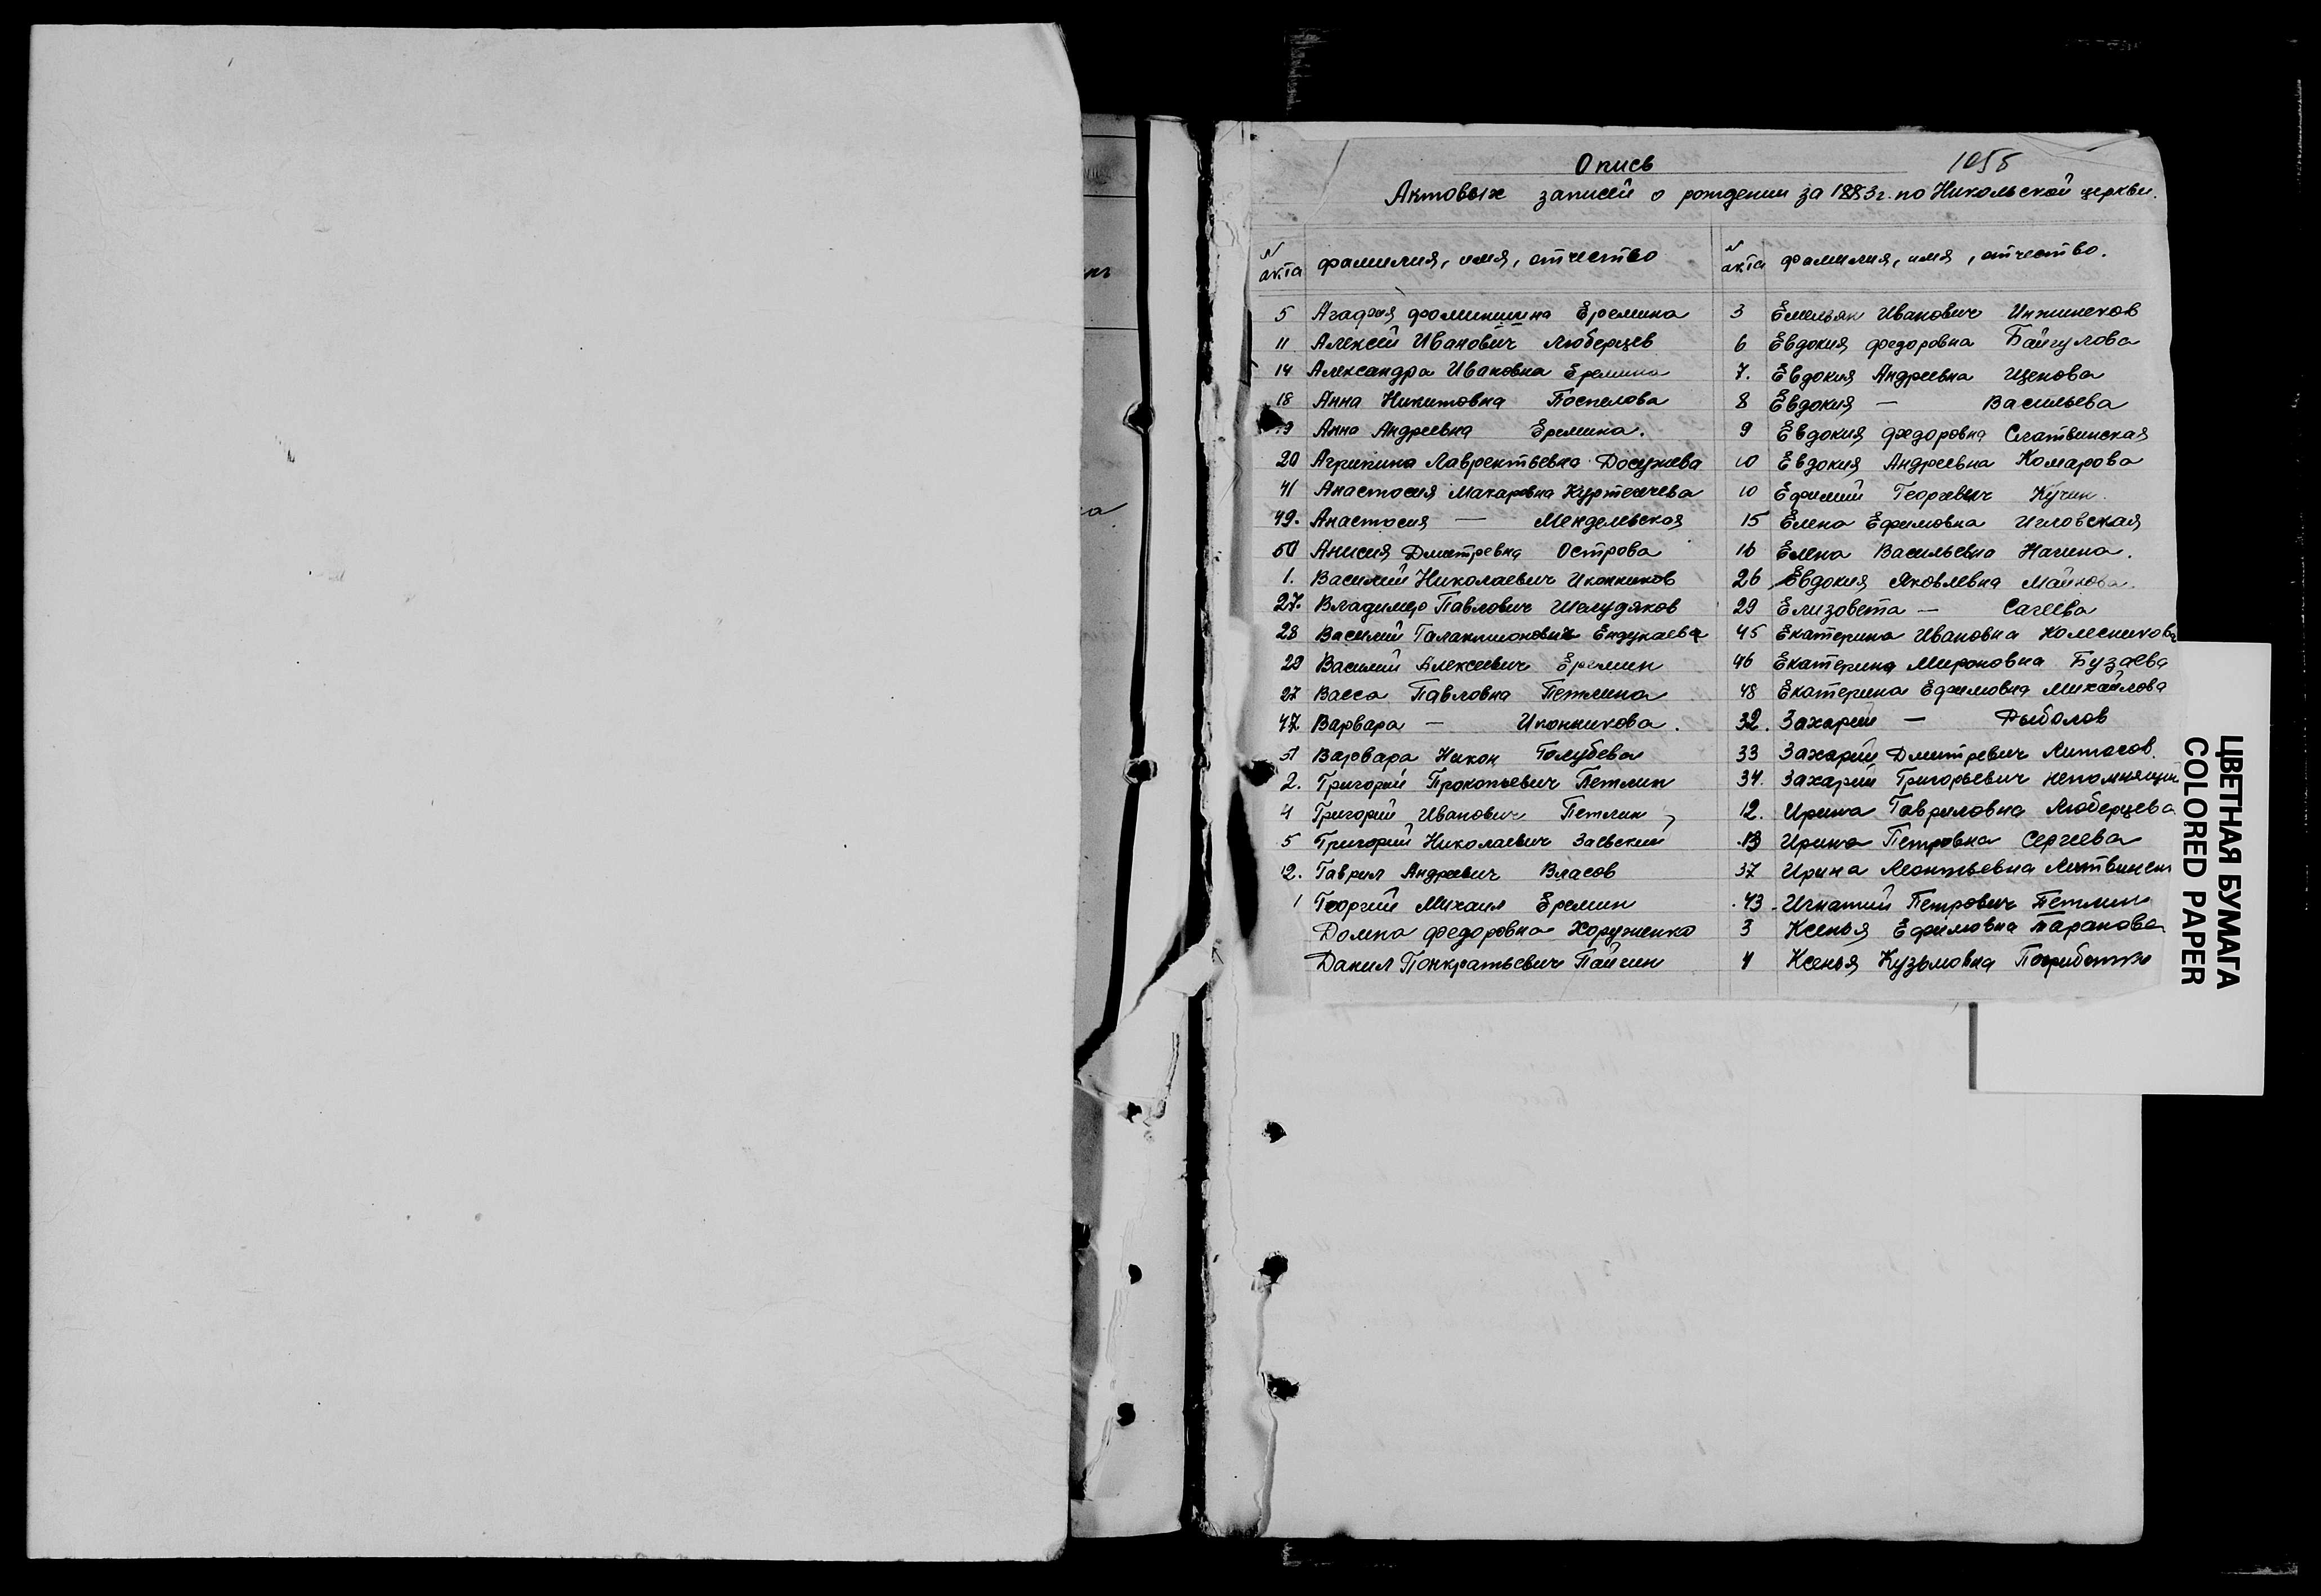 Опись 1058
Актовых записей о рождении за 1883г. по Никольской церкви.
N акта фамилия, имя, отчество
5 Агафия Еремина
11 Алексей Иванович Люберцев
14 Александра Ивановна Еремина
18 Анна Никитовна Поспелова
Анна Андреевна Еремина.
20 Агрипина Лаврентьевна Досужева
41 Анастасия Макаровна
49. Анастасия —
50 Анисия Дмитревна Острова
1. Василий Николаевич Иконников
27. Владимир Павлович Шелудяков
28 Василий Галактионович
29 Василий Алексеевич Еремин
27 Васса Павловна Петлина
47 Варвара — Иконникова.
51 Варвара Никон Голубева
2. Григорий Прокопьевич Петлин
4 Григорий Иванович Петлин
5 Григорий Николаевич Заевский
12. Гаврил Андреевич Власов
1 Георгий Михаил Еремин
Домна Федоровна Хоруженко
Данил Понкратьевич Пайгин
N акта фамилия, имя, отчество.
3 Емельян Иванович
6 Евдокия Федоровна Байгулова
7. Евдокия Андреевна
8 Евдокия — Васильева
9 Евдокия Федоровна Слатвинская
10 Евдокия Андреевна Комарова
10 Ефимий Георгевич Кучин.
15 Елена Ефимовна Игловская
16 Елена Васильевна
26 Евдокия Яковлевна Майкова.
29 Елизовета — Сагеева
45 Екатерина Ивановна Колесникова
46 Екатерина Мироновна Бузаева
48 Екатерина Ефимовна Михайлова
32. Захарий — Рыболов
33 Захарий Дмитревич
34. Захарий Григорьевич Непомнящий
12. Ирина Гавриловна Люберцева
13 Ирина Петровна Сергеева
37 Ирина Леонтьевна
43. Игнатий Петрович Петлин
3 Ксенья Ефимовна Таранова
4 Ксенья Кузьмовна
ЦВЕТНАЯ БУМАГА
COLORED PAPER